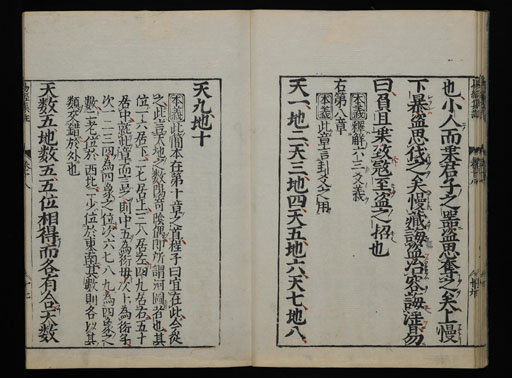 也小人而乗君子之噐盗思奪之矣上慢
下暴盗思伐之矣慢藏誨盗冶容誨淫易
曰負且乗致寇至盗之招也
本義釋解六三爻義
右第八章
本義此章言卦爻之用
天一地二天三地四天五地六天七地八
天九地十
本義此簡本在第十章之首程子曰宜在此今從
之此言天地之數陽奇陰偶即所謂河圖者也其
位一六居下二七居上三八居左四九居右五十
居中就此章而言之則中五爲衍母次十爲衍子
次一二三四爲四象之位次六七八九爲四象之
數二老位於西北二少位於東南其數則各以其
類交錯於外也
天數五地數五五位相得而各有合天數